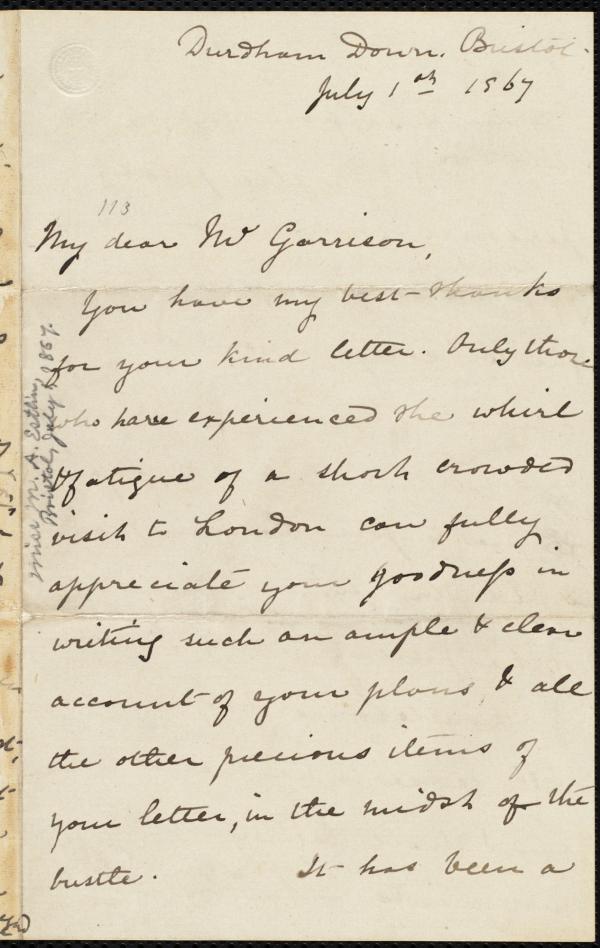 Durdham Down. Bristol.
July 1st 1867
113
My dear Mr Garrison,
You have my best thanks
for your kind letter. Only those
who have experienced the whirl
& fatigue of a short crowded
visit to London can fully
appreciate your goodness in
writing such an ample & clear
account of your plans & all
the other precious items of
your letter, in the midst of the
bustle. It has been a
Miss M. A. Estlin,
Bristol, July 1, 1867.